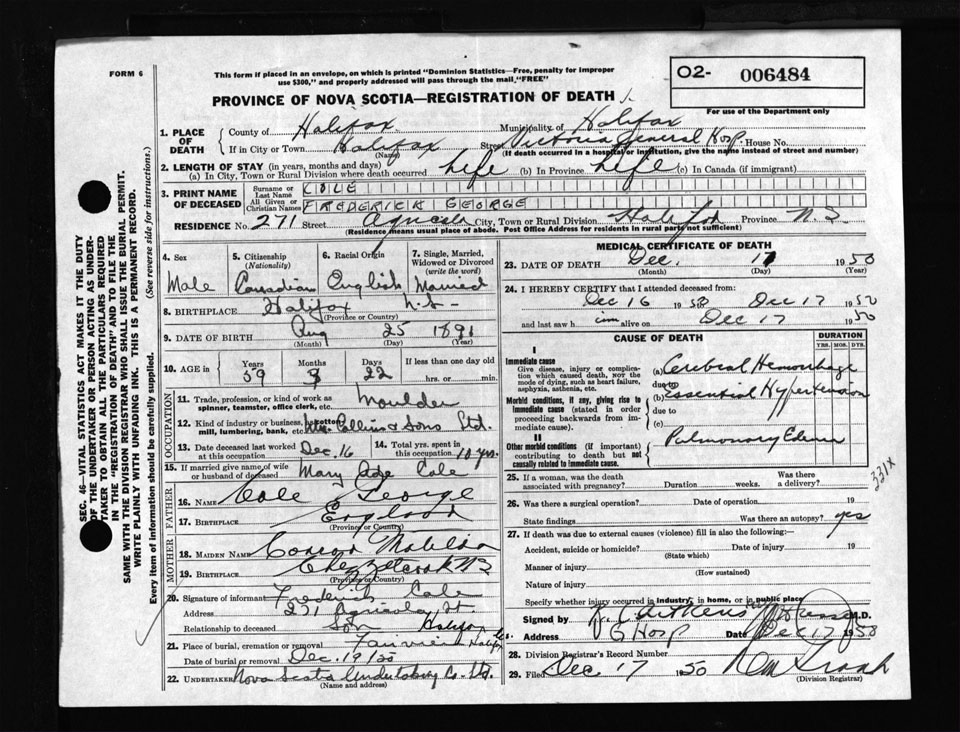 FORM 6
This form if placed in an envelope, on which is printed "Dominion Statistics—Free, penalty for improper
use $300," and properly addressed will pass through the mail "FREE"
O2- 006484
For use of the Department only
PROVINCE OF NOVA SCOTIA—REGISTRATION OF DEATH
1. PLACE OF DEATH
County of Halifax Municipality of Halifax
If in City or Town Halifax (Name) Street Victoria General Hosp House No.
(If death occurred in a hospital or institution, give the name instead of street and number)
2. LENGTH OF STAY (in years, months and days)
(a) In City, Town or Rural Division where death occurred Life (b) In Province Life (c) In Canada (if immigrant)
3. PRINT NAME OF DECEASED
Surname or Last Name COLE
All Given or Christian Names FREDERICK GEORGE
RESIDENCE No. 271 Street Agricola City, Town or Rural Division Halifax Province N.S.
(Residence means usual place of abode. Post Office Address for residents in rural parts not sufficient)
4. Sex Male
5. Citizenship (Nationality) Canadian
6. Racial Origin English
7. Single, Married, Widowed or Divorced (write the word) Married
8. BIRTHPLACE Halifax N.S.
(Province or Country)
9. DATE OF BIRTH Aug 25 1891
(Month) (Day) (Year)
10. AGE in Years 59 Months 3 Days 22 If less than one day old hrs. or min.
OCCUPATION
11. Trade, profession, or kind of work as spinner, teamster, office clerk, etc. Moulder
12. Kind of industry or business, as cotton mill, lumbering, bank, etc. Collins & Sons Ltd.
13. Date deceased last worked at this occupation Dec. 16
14. Total yrs. spent in this occupation 10 yrs.
15. If married give name of wife or husband of deceased Mary Cole
FATHER
16. NAME Cole George
17. BIRTHPLACE England
(Province or Country)
MOTHER
18. MAIDEN NAME Conrod Matilda
19. BIRTHPLACE Chezzetcook N.S.
(Province or Country)
20. Signature of informant Frederick Cole
Address 271 Agricola St
Relationship to deceased Son Halifax
21. Place of burial, cremation or removal Fairview Halifax
Date of burial or removal Dec. 19/50
22. UNDERTAKER Nova Scotia Undertaking Co. Ltd.
(Name and address)
MEDICAL CERTIFICATE OF DEATH
23. DATE OF DEATH Dec. 17 1950
(Month) (Day) (Year)
24. I HEREBY CERTIFY that I attended deceased from:
Dec 16 1950 Dec 17 1950
and last saw him alive on Dec 17 1950
CAUSE OF DEATH
DURATION
YRS. MOS. DYS.
I
Immediate cause
Give disease, injury or complication which caused death, not the mode of dying, such as heart failure, asphyxia, asthenia, etc.
(a) Cerebral Hemorrhage
due to
Morbid conditions, if any, giving rise to immediate cause (stated in order proceeding backwards from immediate cause)
(b) Essential Hypertension
due to
(c)
II
Other morbid conditions (if important) contributing to death but not causally related to immediate cause.
Pulmonary Edema
331X
25. If a woman, was the death associated with pregnancy? Duration weeks. Was there a delivery?
26. Was there a surgical operation? Date of operation. 19
State findings Was there an autopsy? yes
27. If death was due to external causes (violence) fill in also the following:
Accident, suicide or homicide? Date of injury 19
(State which)
Manner of injury
(How sustained)
Nature of injury
Specify whether injury occurred in industry, in home, or in public place
Signed by M.D.
Address G Hosp Date Dec 17 1950
28. Division Registrar's Record Number
29. Filed Dec 17 1950
(Division Registrar)
SEC. 46—VITAL STATISTICS ACT MAKES IT THE DUTY
OF THE UNDERTAKER OR PERSON ACTING AS UNDER-
TAKER TO OBTAIN ALL THE PARTICULARS REQUIRED
IN THE "REGISTRATION OF DEATH" AND TO FILE THE
SAME WITH THE DIVISION REGISTRAR WHO SHALL ISSUE THE BURIAL PERMIT.
WRITE PLAINLY WITH UNFADING INK. THIS IS A PERMANENT RECORD.
Every item of information should be carefully supplied. (See reverse side for instructions.)